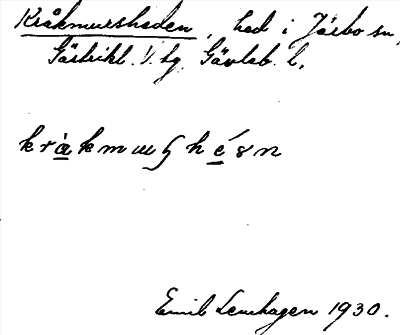 Kråkmursheden, hed i Järbo sn,
Gästrikl. V. tg. Gävleb. l.
kràkmuʂhéән
Emil Lenhagen 1930.